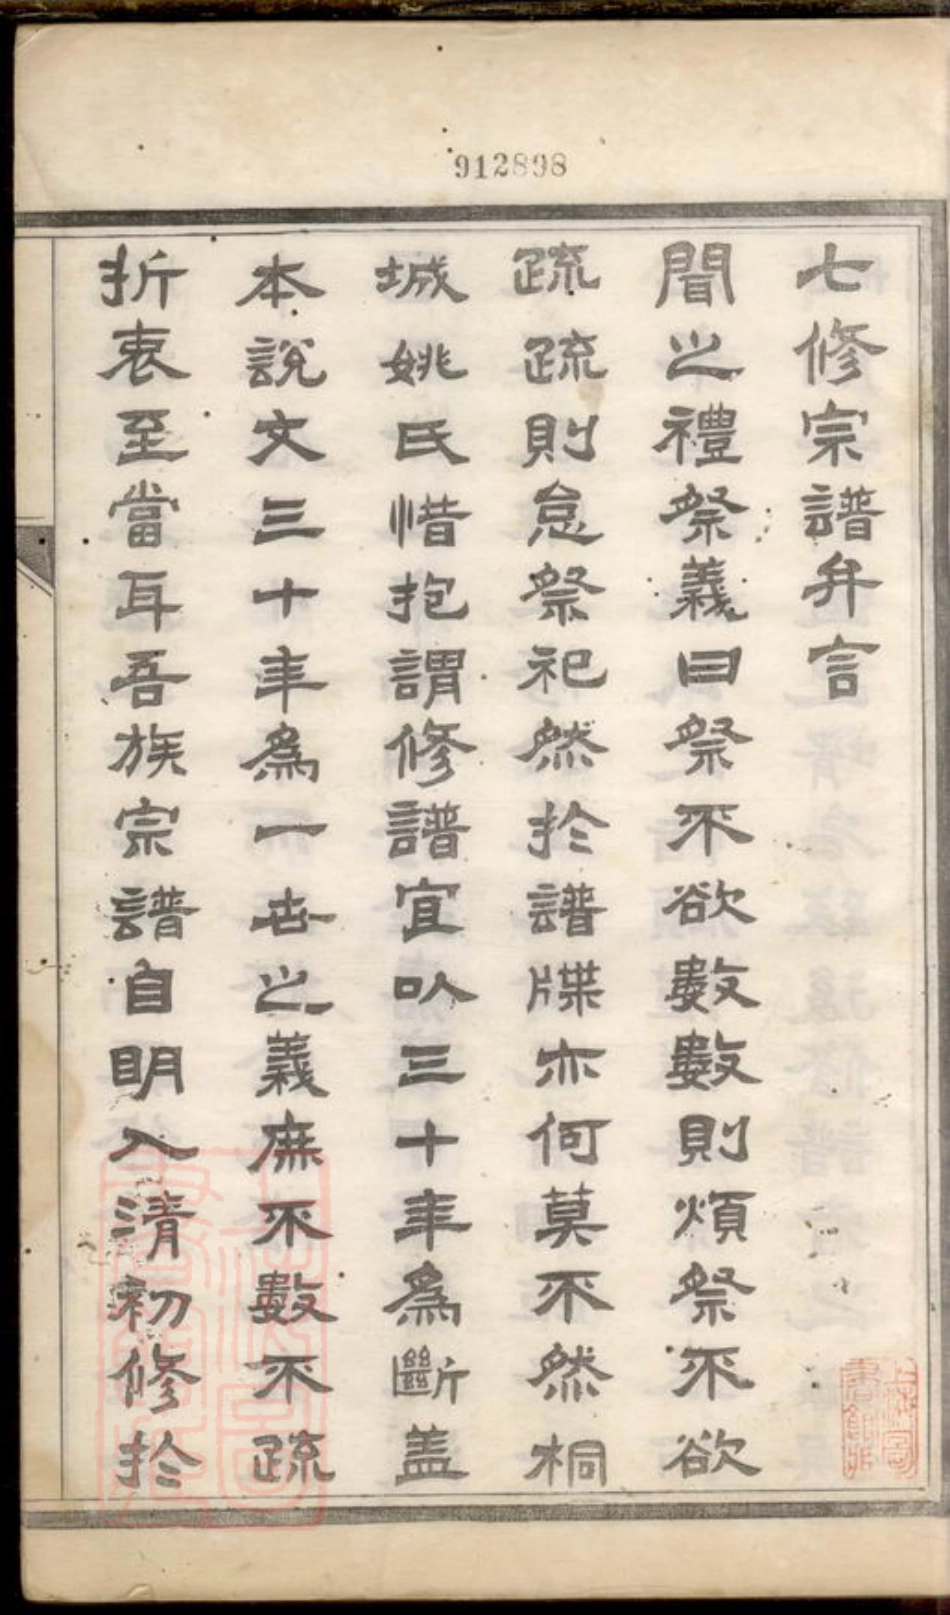 912898
七修宗譜弁言
聞之禮祭義曰祭不欲數數則煩祭不欲
疏疏則怠祭祀然於譜牒亦何莫不然桐
城姚氏惜抱謂修譜宜以三十年為斷盖
本說文三十年為一世之義庶不數不疏
折衷至當耳吾族宗譜自明入清初修於